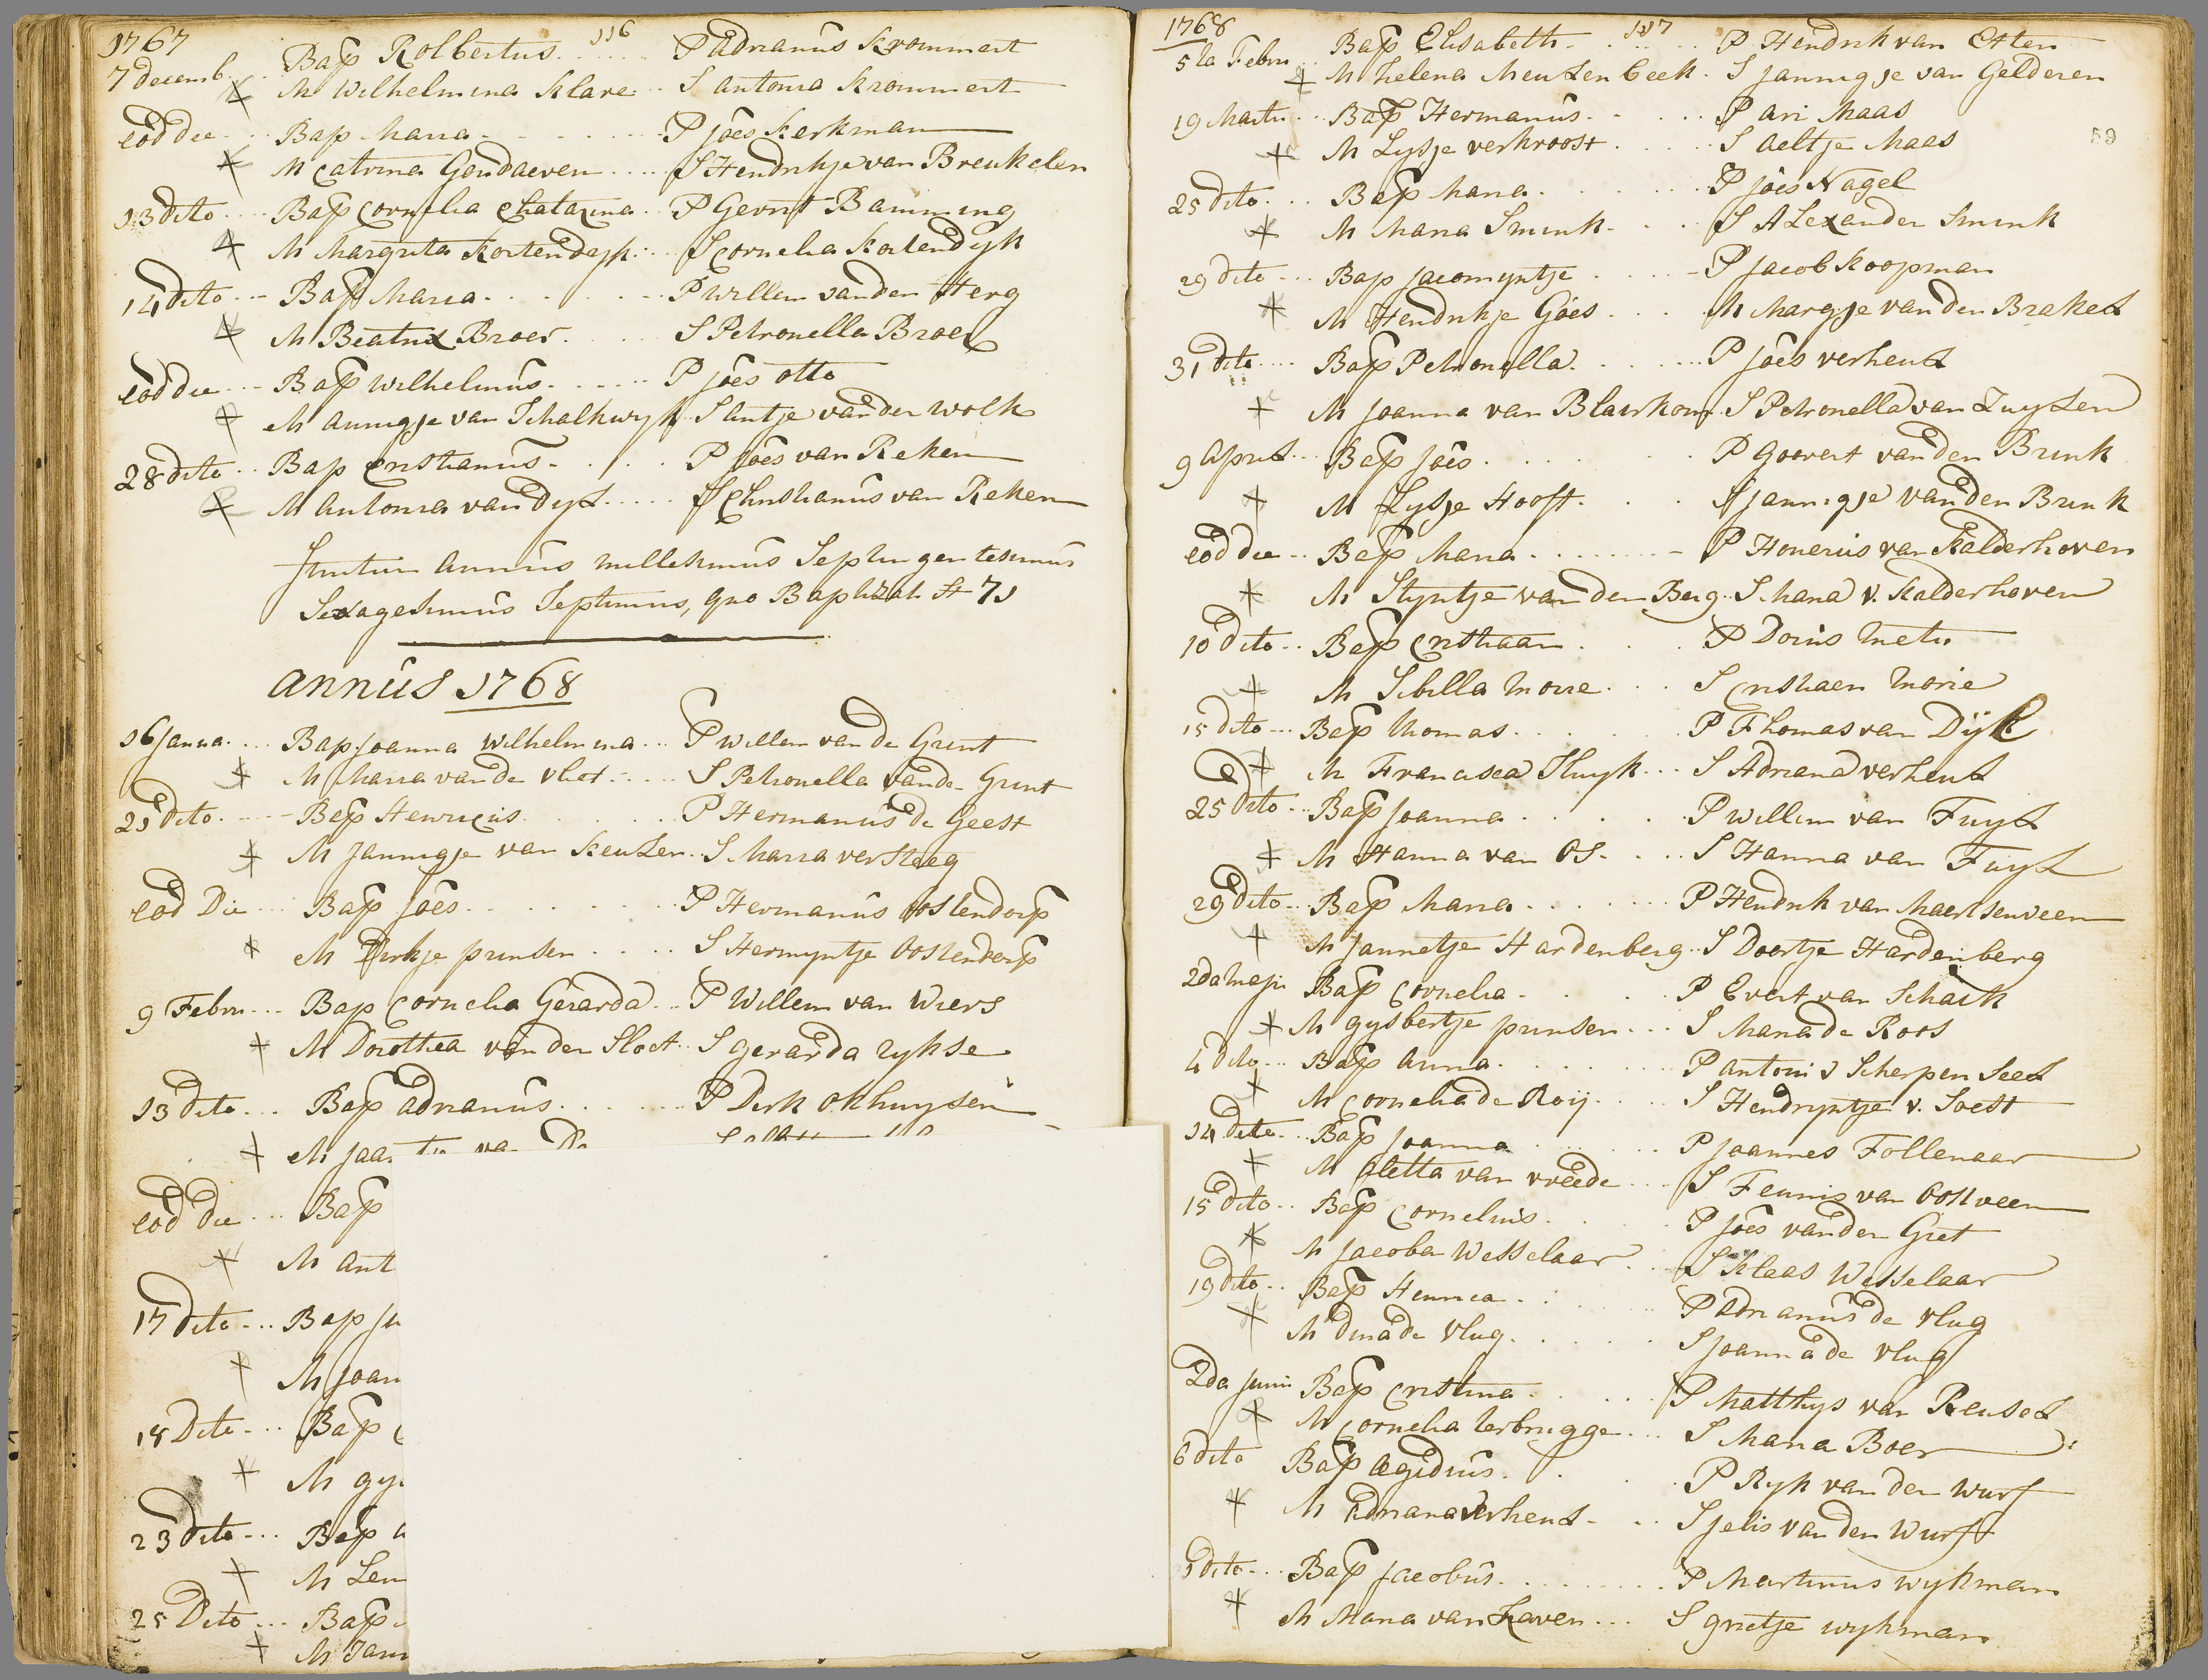 1767
116
7 decemb. Bap Rolbertus P Adrianus Krommert
M Wilhelmina Klare S antonia Krommert
eod die Bap Maria P joes Kerkman
M Catrina Goudaeven S Hendrikje van Breukelen
13 dito Bap Cornelia Chatarina P Gerrit Bamming
M Margrita Kortendyk S Cornelia Kortendyk
14 dito Bap Maria P Willem van den Herg
M Beatrix Broer S Petronella Broer
eod die Bap Wilhelmus P joes otto
M annigje van Schalkwyk S antje van der Wolk
28 dito Bap Cristianus P joes van Reken
M antonia van Dyl S Christianus van Reken
finitur annus millesimus Septingentesimus
Sexagesimus Septimus, quo Baptizati st 71
annus 1768
16 janua. Bap joanna Wilhelmina P Willem van de Grint
M Maria van de Vliet S Petronella van de Grint
21 dito Bap Henricus P Hermanus de Geest
M jannigje van Keulen S Maria versteeg
eod Die Bap joes P Hermanus Oostendorp
M Dirkje prinsen S Hermyntje Oostendorp
9 Febru Bap Cornelia Gerarda P Willem van Wiers
M Dorothea van der Sloot S gerarda rykse
13 dito Bap adrianus P Dirk Okhuysen
M
eod die Bap
M ant
17 dito Bap
M joan
18 Dito Bap
M gy
23 dito Bap
M Len
25 Dito Bap
M Jan
1768
117
59
5ta Febru Bap Elisabeth P Hendrik van Etten
M helena Meulenbeek S jannigje van Gelderen
19 Martii Bap Hermanus P ari Maas
M Lysje verkroost S aeltje Maas
25 dito Bap Maria P joes Nagel
M Maria Smink S Alexander Smink
29 dito Bap jacomyntje P jacob Koopman
M Hendrikje Goes M Margje van den Brakel
31 dito Bap Petronella P joes verheul
M joanna van Blarkom S Petronella van Zuylen
9 april Bap joes P govert van den Brink
M Lysje Hooft S jannigje van den Brink
eod die Bap Maria P Honerus van Kalderhoven
M Styntje van den Berg S Maria v. Kalderhoven
10 dito Bap Cristiaan P Dorus Metu
M Sibilla Morie S Cristiaen Morie
15 dito Bap thomas P Thomas van Dijk
M Francisca Sluyk S Adriana verheul
25 dito Bap joanna P willem van Tuyl
M Hanna van Os S Hanna van Tuyl
29 dito Bap Maria P Hendrik van Maersenveen
M jannetje Hardenberg S Doortje Hardenberg
2da Maji Bap Cornelia P Evert van Schaik
M gysbertje prinsen S Maria de Roos
4 dito Bap anna P antoni Scherpenseel
M Cornelia de Roij S Hendryntje v. Soest
14 dito Bap joanna P joannes Tollenaar
M aletta van vreede S Teunis van Oostveen
15 dito Bap Cornelius P joes van der Giet
M jacoba Wesselaar S Klaas Wesselaar
19 dito Bap Henrica P adrianus de vlug
M dina de vlug S joanna de vlug
2da junii Bap Cristina P Matthys van Reusel
M Cornelia terbrugge S Maria Boer
6 dito Bap Aegidius P Ryk van der Wurf
M adriana verheul S jelis van den Wurf
dito Bap jacobus P Martinus wykman
M Maria van Haven S grietje wykman